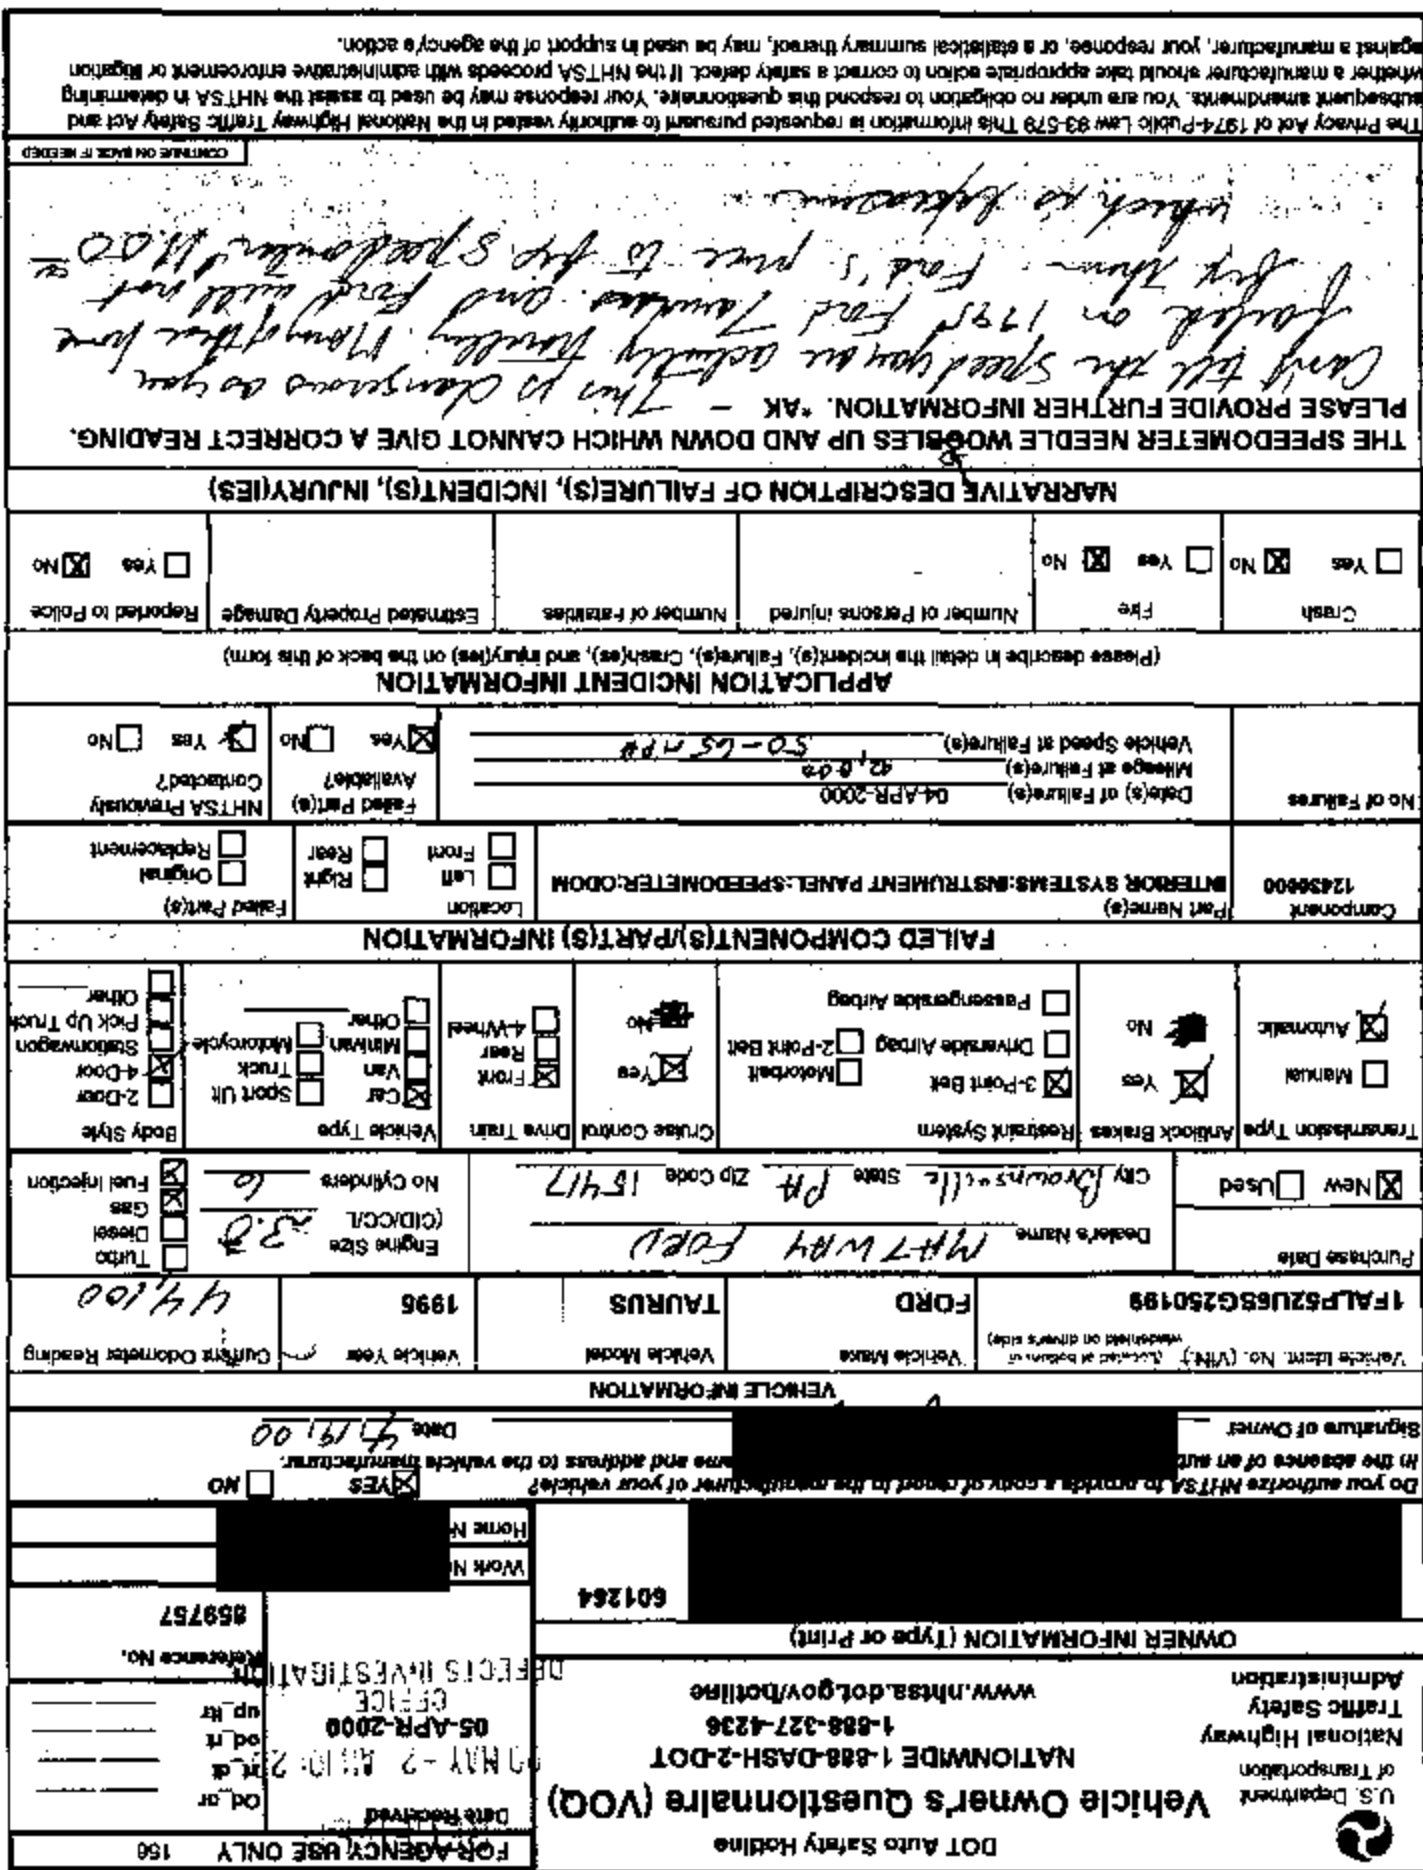 U.S. Department
of Transportation
National Highway
Traffic Safety
Administration
DOT Auto Safety Hotline
Vehicle Owner's Questionnaire (VOQ)
NATIONWIDE 1-888-DASH-2-DOT
1-888-327-4236
www.nhtsa.dot.gov/hotline
FOR AGENCY USE ONLY 156
Date Received
05-APR-2000
OFFICE
DEFECTS INVESTIGATION
Od_or
rt_dt
od_rt
up_ltr
Reference No.
859757
OWNER INFORMATION (Type or Print)
601264
Work N
Home N
Do you authorize NHTSA to provide a copy of report to the manufacturer of your vehicle? YES NO
In the absence of an aut me and address to the vehicle manufacturer.
Signature of Owner Date 4,19,00
VEHICLE INFORMATION
Vehicle Ident. No. (VIN) (Located at bottom of windshield on driver's side)
1FALP52U6SG250199
Vehicle Make
FORD
Vehicle Model
TAURUS
Vehicle Year
1995
Current Odometer Reading
44,100
Purchase Date
New Used
Dealer's Name HATWAY FORD
City Brownsville State PA Zip Code 15417
Engine Size
(CID/CC/L 3.0
No Cylinders 6
Turbo
Diesel
Gas
Fuel Injection
Transmission Type
Manual
Automatic
Antilock Brakes
Yes
No
Restraint System
3-Point Belt Motorbelt
Driverside Airbag 2-Point Belt
Passengerside Airbag
Cruise Control
Yes
No
Drive Train
Front
Rear
4-Wheel
Vehicle Type
Car Sport Ult
Van Truck
Minivan Motorcycle
Other
Body Style
2-Door
4-Door
Stationwagon
Pick Up Truck
Other
FAILED COMPONENT(S)/PART(S) INFORMATION
Component
12430000
Part Name(s)
INTERIOR SYSTEMS:INSTRUMENT PANEL:SPEEDOMETER:ODOM
Location
Left Right
Front Rear
Failed Part(s)
Original
Replacement
No of Failures
Date(s) of Failure(s) 04-APR-2000
Mileage at Failure(s) 42,000
Vehicle Speed at Failure(s) 50-65 MPH
Failed Part(s)
Available?
Yes No
NHTSA Previously
Contacted?
Yes No
APPLICATION INCIDENT INFORMATION
(Please describe in detail the incident(s), Failure(s), Crash(es), and injury(ies) on the back of this form)
Crash
Yes No
Fire
Yes No
Number of Persons injured
Number of Fatalities
Estimated Property Damage
Reported to Police
Yes No
NARRATIVE DESCRIPTION OF FAILURE(S), INCIDENT(S), INJURY(IES)
THE SPEEDOMETER NEEDLE WOBBLES UP AND DOWN WHICH CANNOT GIVE A CORRECT READING.
PLEASE PROVIDE FURTHER INFORMATION. *AK - This is dangerous as you
can't tell the speed you are actually traveling. Many of these have
failed on 1995 Ford Tauruses and Ford will not
fix them. Ford's price to fix speedometer
which is
CONTINUE ON BACK IF NEEDED
The Privacy Act of 1974-Public Law 93-579 This information is requested pursuant to authority vested in the National Highway Traffic Safety Act and
subsequent amendments. You are under no obligation to respond this questionnaire. Your response may be used to assist the NHTSA in determining
whether a manufacturer should take appropriate action to correct a safety defect. If the NHTSA proceeds with administrative enforcement or litigation
against a manufacturer, your response, or a statistical summary thereof, may be used in support of the agency's action.